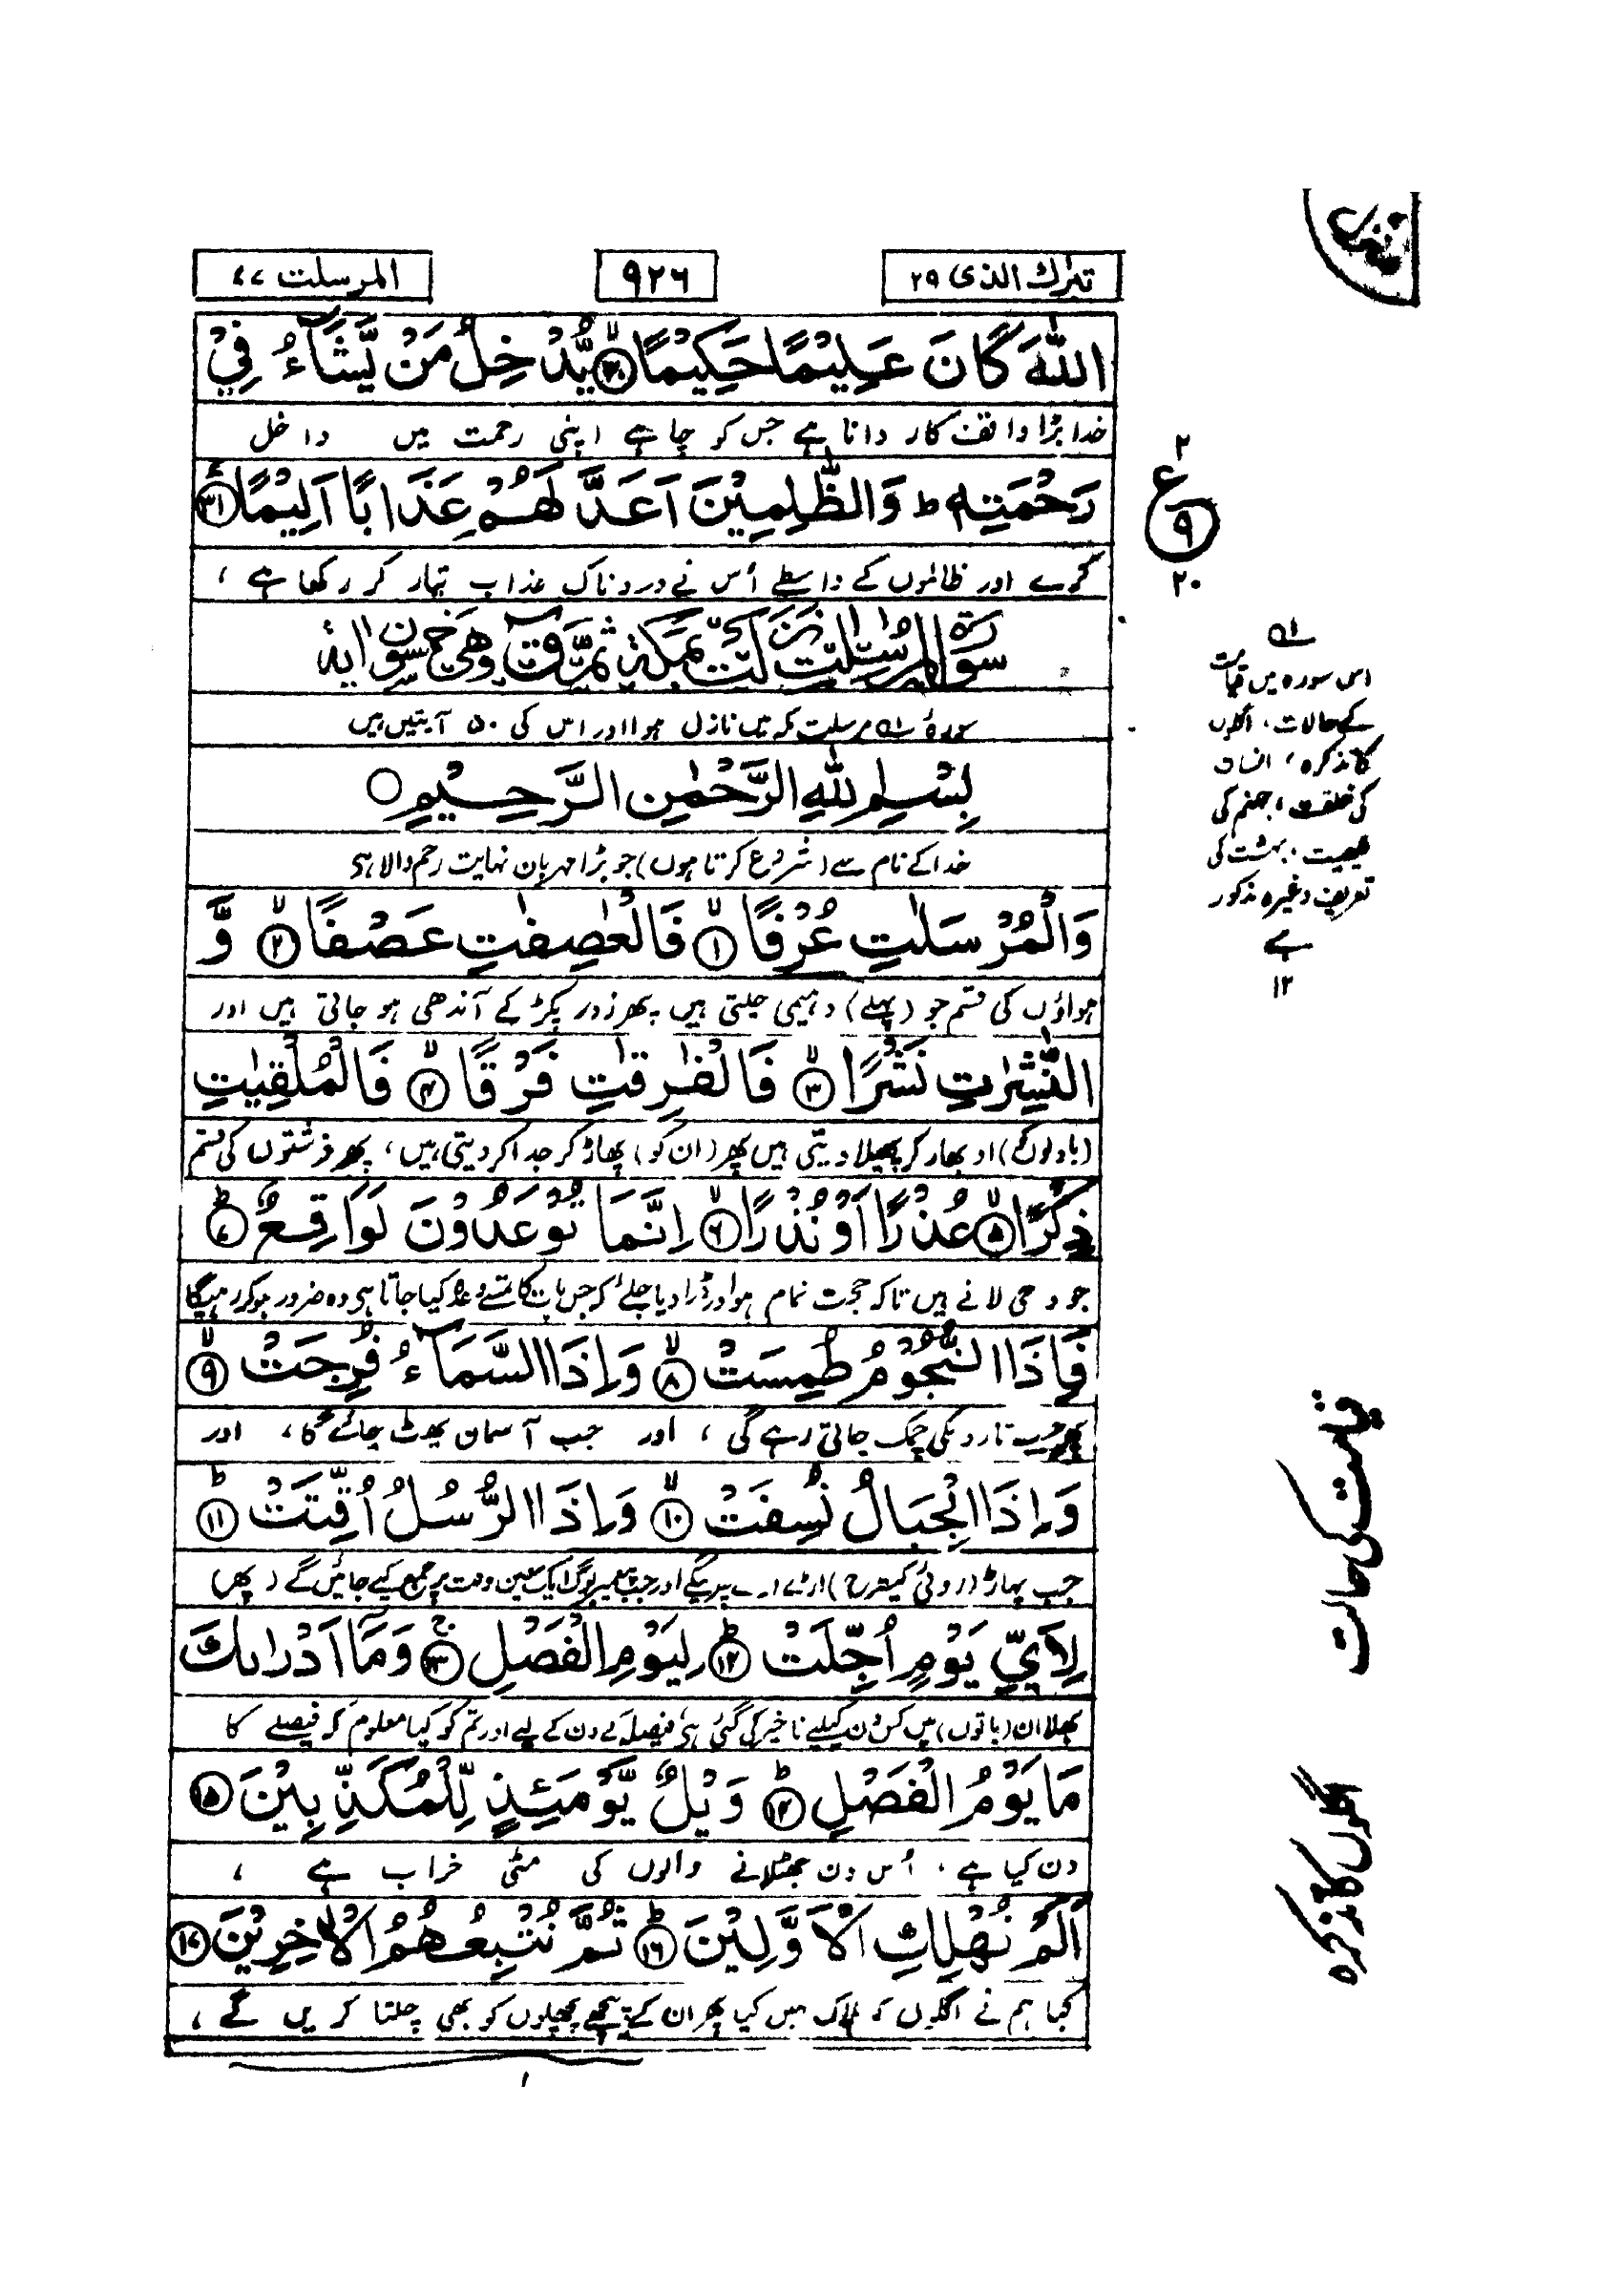 تبٰرك الذی ٢٩
٩٢٦
المرسلت ٧٧
اللّٰهَ كَانَ عَلِيْمًا حَكِيْمًا ٣٠ يُّدْخِلُ مَنْ يَّشَآءُ فِيْ
خدا بڑا واقف کار دانا ہے جس کو چاہے اپنی رحمت میں داخل
رَحْمَتِهٖ ط وَالظّٰلِمِيْنَ اَعَدَّ لَهُمْ عَذَابًا اَلِيْمًا ٣١
کرے اور ظالموں کے واسطے اُس نے دردناک عذاب تیار کر رکھا ہے ،
سورة المرسلٰت نزلت بمكة وهي خمسون اٰية
سورۂ مرسلت مکہ میں نازل ہوا اور اس کی ٥٠ آیتیں ہیں
بِسْمِ اللّٰهِ الرَّحْمٰنِ الرَّحِيْمِ
خدا کے نام سے (شروع کرتا ہوں) جو بڑا مہربان نہایت رحم والا ہی
وَالْمُرْسَلٰتِ عُرْفًا ١ فَالْعٰصِفٰتِ عَصْفًا ٢ وَّ
ہواؤں کی قسم جو (پہلے) دھیمی چلتی ہیں پھر زور پکڑ کے آندھی ہو جاتی ہیں اور
النّٰشِرٰتِ نَشْرًا ٣ فَالْفٰرِقٰتِ فَرْقًا ٤ فَالْمُلْقِيٰتِ
(بادلوں کو) اوبھار کر پھیلا دیتی ہیں پھر (ان کو) پھاڑ کر جدا کر دیتی ہیں ، پھر فرشتوں کی قسم
ذِكْرًا ٥ عُذْرًا اَوْ نُذْرًا ٦ اِنَّمَا تُوْعَدُوْنَ لَوَاقِعٌ ٧
جو وحی لاتے ہیں تاکہ حجت تمام ہو اور ڈرا دیا جائے کہ جس بات کا تمسے وعدہ کیا جاتا ہی وہ ضرور ہو کر رہیگا
فَاِذَا النُّجُوْمُ طُمِسَتْ ٨ وَاِذَا السَّمَآءُ فُرِجَتْ ٩
پھر جب تارونکی چمک جاتی رہے گی ، اور جب آسمان پھٹ جائے گا ، اور
وَاِذَا الْجِبَالُ نُسِفَتْ ١٠ وَاِذَا الرُّسُلُ اُقِّتَتْ ١١
جب پہاڑ (روئی کیطرح) اڑے اڑے پھرینگے اور جب پیغمبر لوگ ایک معین وقت پر جمع کیے جائیں گے (پھر)
لِاَيِّ يَوْمٍ اُجِّلَتْ ١٢ لِيَوْمِ الْفَصْلِ ١٣ وَمَآ اَدْرٰىكَ
بھلا ان (باتوں) میں کس دن کیلیے تاخیر کی گئی ہی فیصلہ کے دن کے لیے اور تم کو کیا معلوم کہ فیصلے کا
مَا يَوْمُ الْفَصْلِ ١٤ وَيْلٌ يَّوْمَئِذٍ لِّلْمُكَذِّبِيْنَ ١٥
دن کیا ہے ، اُس دن جھٹلانے والوں کی مٹی خراب ہے ،
اَلَمْ نُهْلِكِ الْاَوَّلِيْنَ ١٦ ثُمَّ نُتْبِعُهُمُ الْاٰخِرِيْنَ ١٧
کیا ہم نے اگلوں کو ہلاک نہیں کیا پھر ان کے پیچھے پچھلوں کو بھی چلتا کریں گے ،
١
منزل
٢
ع
٩
٢٠
اس سورہ میں قیامت
کے حالات ، اگلوں
کا تذکرہ ، انسان
کی خلقت ، جہنم کی
کیفیت ، بہشت کی
تعریف وغیرہ مذکور
ہے
١٢
قیامت کی حالت
اگلوں کا تذکرہ